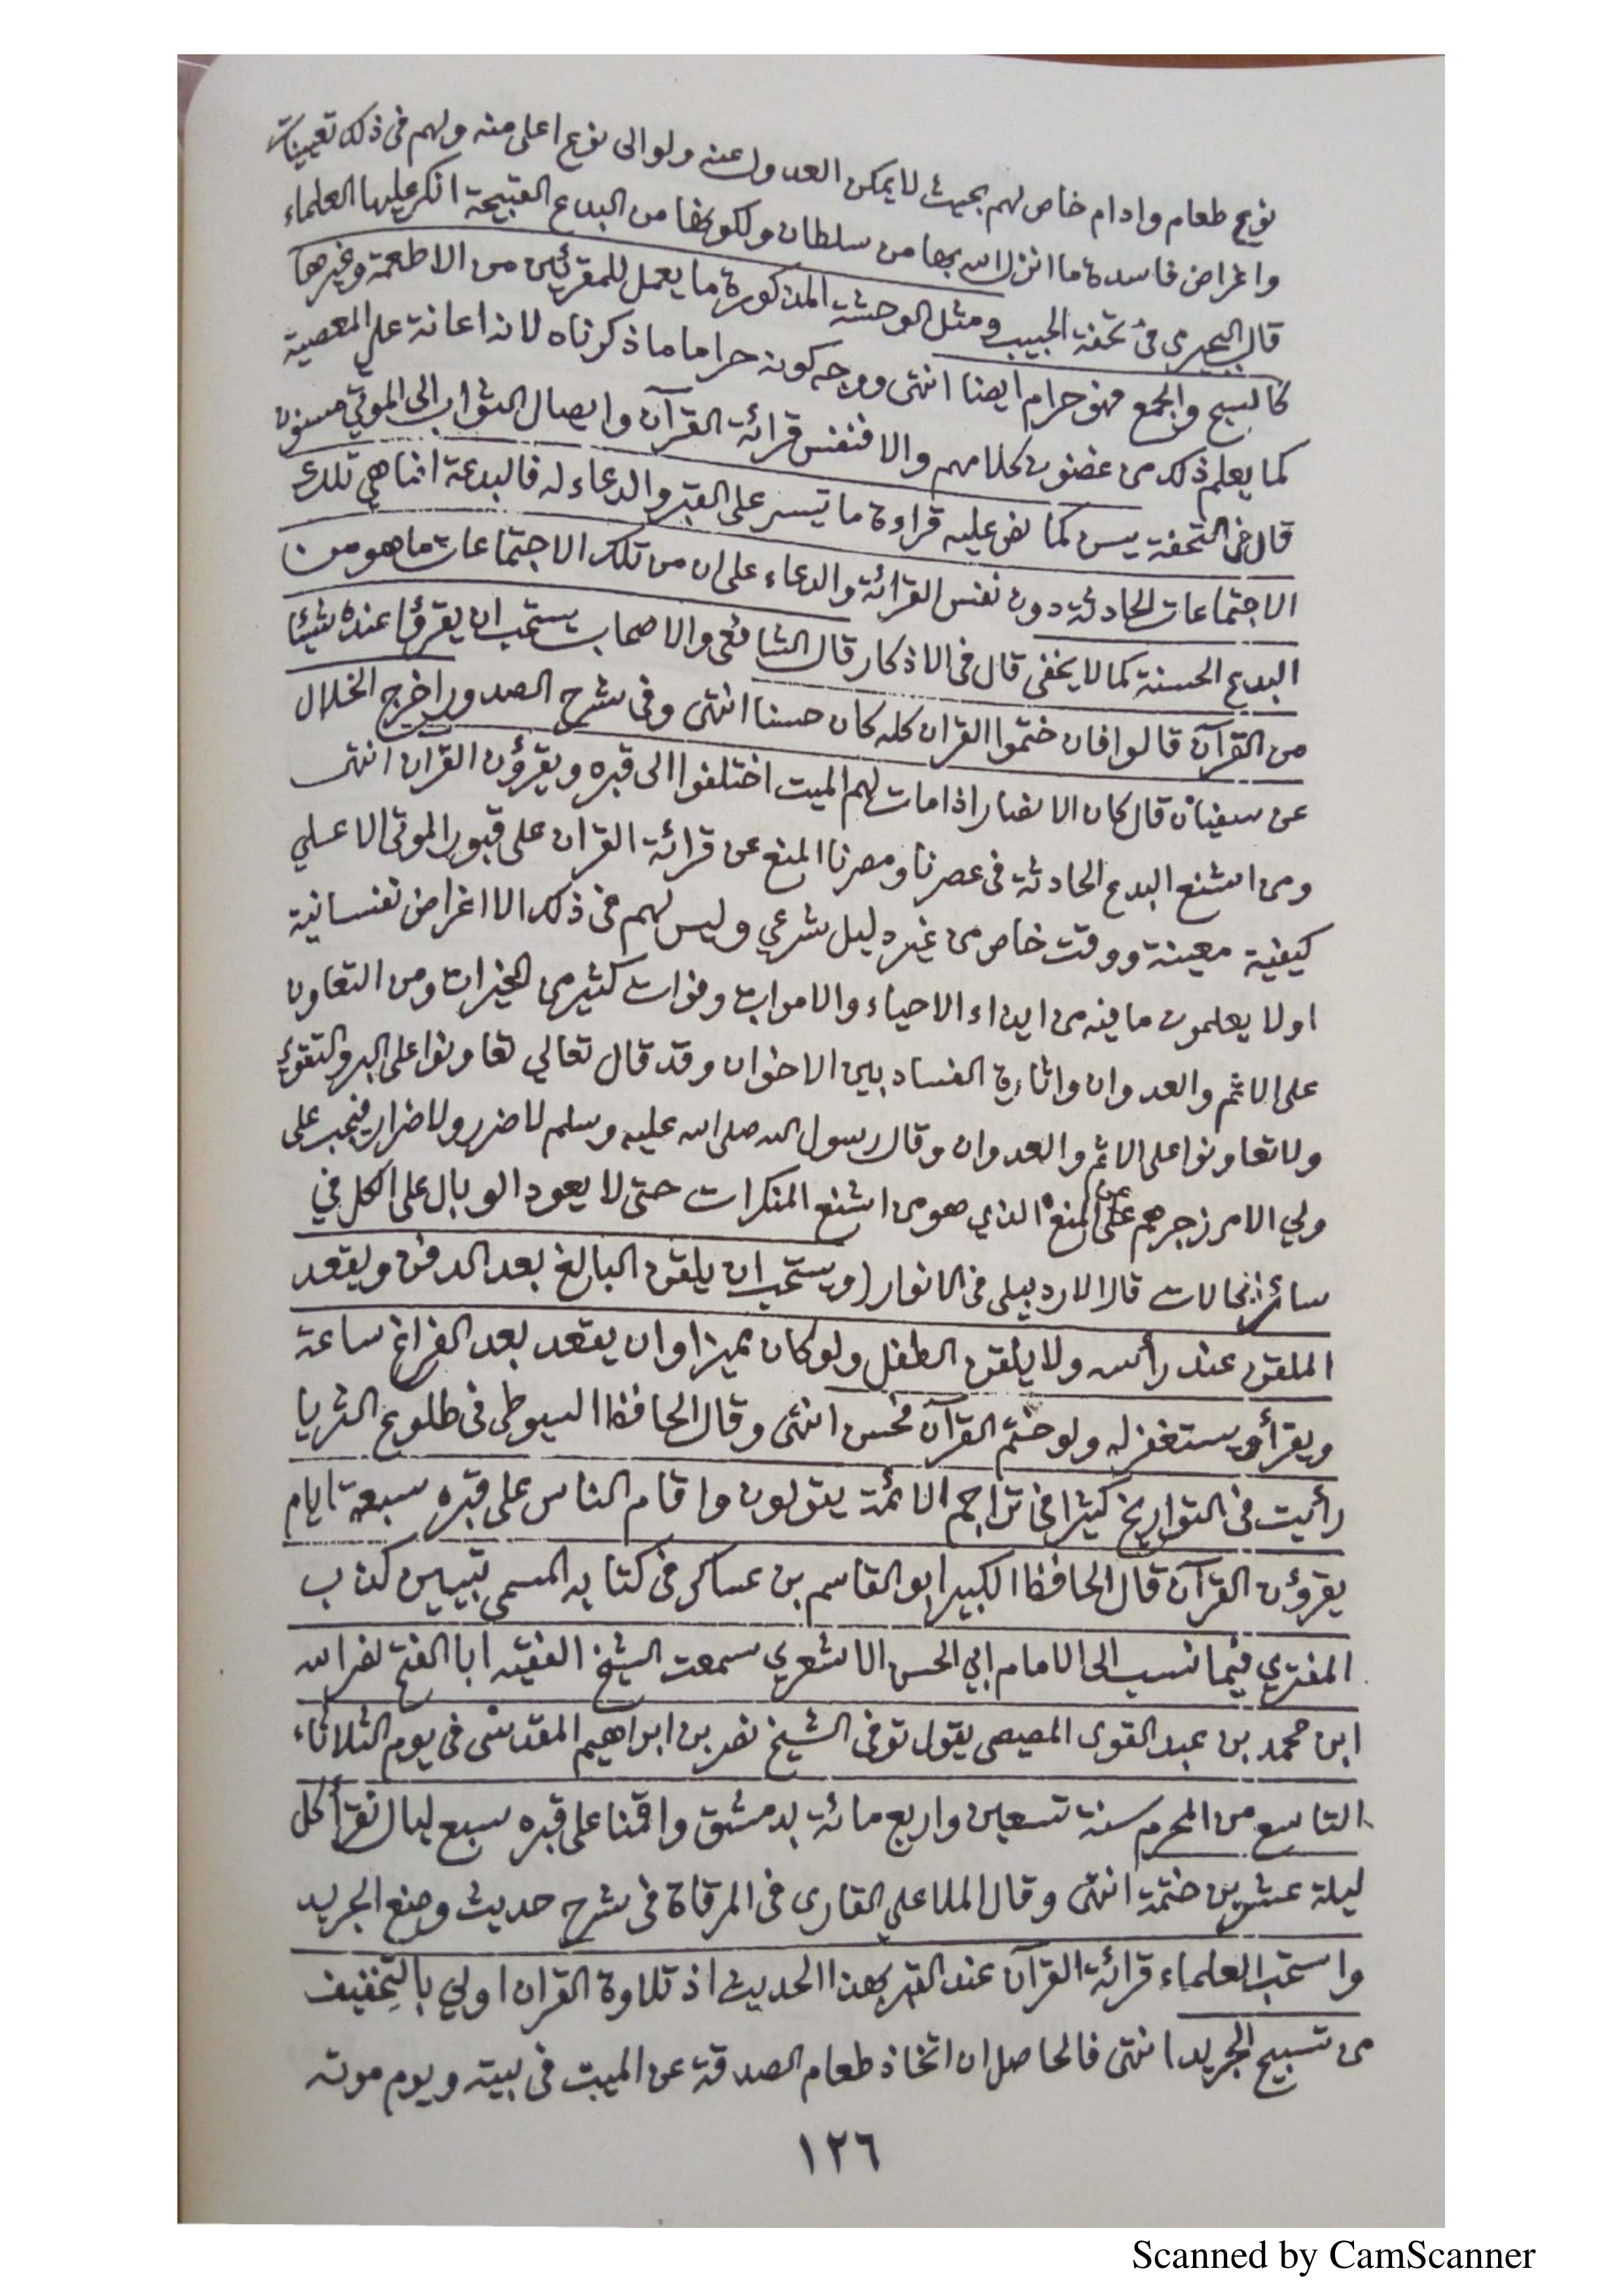 نوع طعام وادام خاص لهم بحيث لا يمكن العدول عنه ولو الى نوع اعلى منه ولهم فى ذلك تعيينات
واغراض فاسدة ما انزل الله بها من سلطان ولكونها من البدع القبيحة انكر عليها العلماء
قال البجيرمى فى تحفة الحبيب ومثل الوحشة المذكورة ما يعمل للمقرئين من الاطعمة وغيرها
كالسبح والجمع فهو حرام ايضا انتهى ووجه كونه حراما ما ذكرناه لانه اعانة على المعصية
كما يعلم ذلك من غضون كلامهم والا فنفس قرائة القرآن وايصال الثواب الى الموتى مسنون
قال فى التحفة يسن كما نص عليه قراءة ما تيسر على القبر والدعاء له فالبدعة انما هي تلك
الاجتماعات الحادثة دون نفس القرائة والدعاء على ان من تلك الاجتماعات ما هو من
البدع الحسنة كما لا يخفى قال فى الاذكار قال الشافعى والاصحاب يستحب ان يقرؤا عنده شيئا
من القرآن قالوا فان ختموا القران كله كان حسنا انتهى وفى شرح الصدور اخرج الخلال
عن سفيان قال كان الانصار اذا مات لهم الميت اختلفوا الى قبره ويقرؤن القران انتهى
ومن اشنع البدع الحادثة فى عصرنا ومصرنا المنع عن قرائة القران على قبور الموتى الا على
كيفية معينة ووقت خاص من غير دليل شرعي وليس لهم فى ذلك الا اغراض نفسانية
اولا يعلمون ما فيه من ايذاء الاحياء والاموات وفوات كثير من الخيرات ومن التعاون
على الاثم والعدوان واثارة الفساد بين الاخوان وقد قال تعالي تعاونوا على البر والتقوى
ولا تعاونوا على الاثم والعدوان وقال رسول الله صلى الله عليه وسلم لا ضرر ولا ضرار فيجب على
ولي الامر زجرهم عن المنع الذي هو من اشنع المنكرات حتى لا يعود الوبال على الكل في
سائر الحالات قال الاردبيلى فى الانوار (ويستحب ان يلقن البالغ بعد الدفن ويقعد
الملقن عند رأسه ولا يلقن الطفل ولو كان مميزا وان يقعد بعد الفراغ ساعة
ويقرأ ويستغفر له ولو ختم القرآن فحسن انتهى وقال الحافظ السيوطى فى طلوع الثريا
رأيت فى التواريخ كثيرا فى تراجم الائمة يقولون واقام الناس على قبره سبعة ايام
يقرؤن القرآن قال الحافظ الكبير ابو القاسم بن عساكر فى كتابه المسمى تبيين كذب
المفتري فيما نسب الى الامام ابي الحسن الاشعري سمعت الشيخ الفقيه ابا الفتح نصر الله
ابن محمد بن عبد القوى المصيصى يقول توفى الشيخ نصر بن ابراهيم المقدسى فى يوم الثلاثاء
التاسع من المحرم سنة تسعين واربع مائة بدمشق واقمنا على قبره سبع ليال نقرأ كل
ليلة عشرين ختمة انتهى وقال الملا علي القارى فى المرقاة فى شرح حديث وضع الجريد
واستحب العلماء قرائة القرآن عند القبر بهذا الحديث اذ تلاوة القران اولي بالتخفيف
من تسبيح الجريد انتهى فالحاصل ان اتخاذ طعام الصدقة عن الميت فى بيته ويوم موته
١٢٦
Scanned by CamScanner